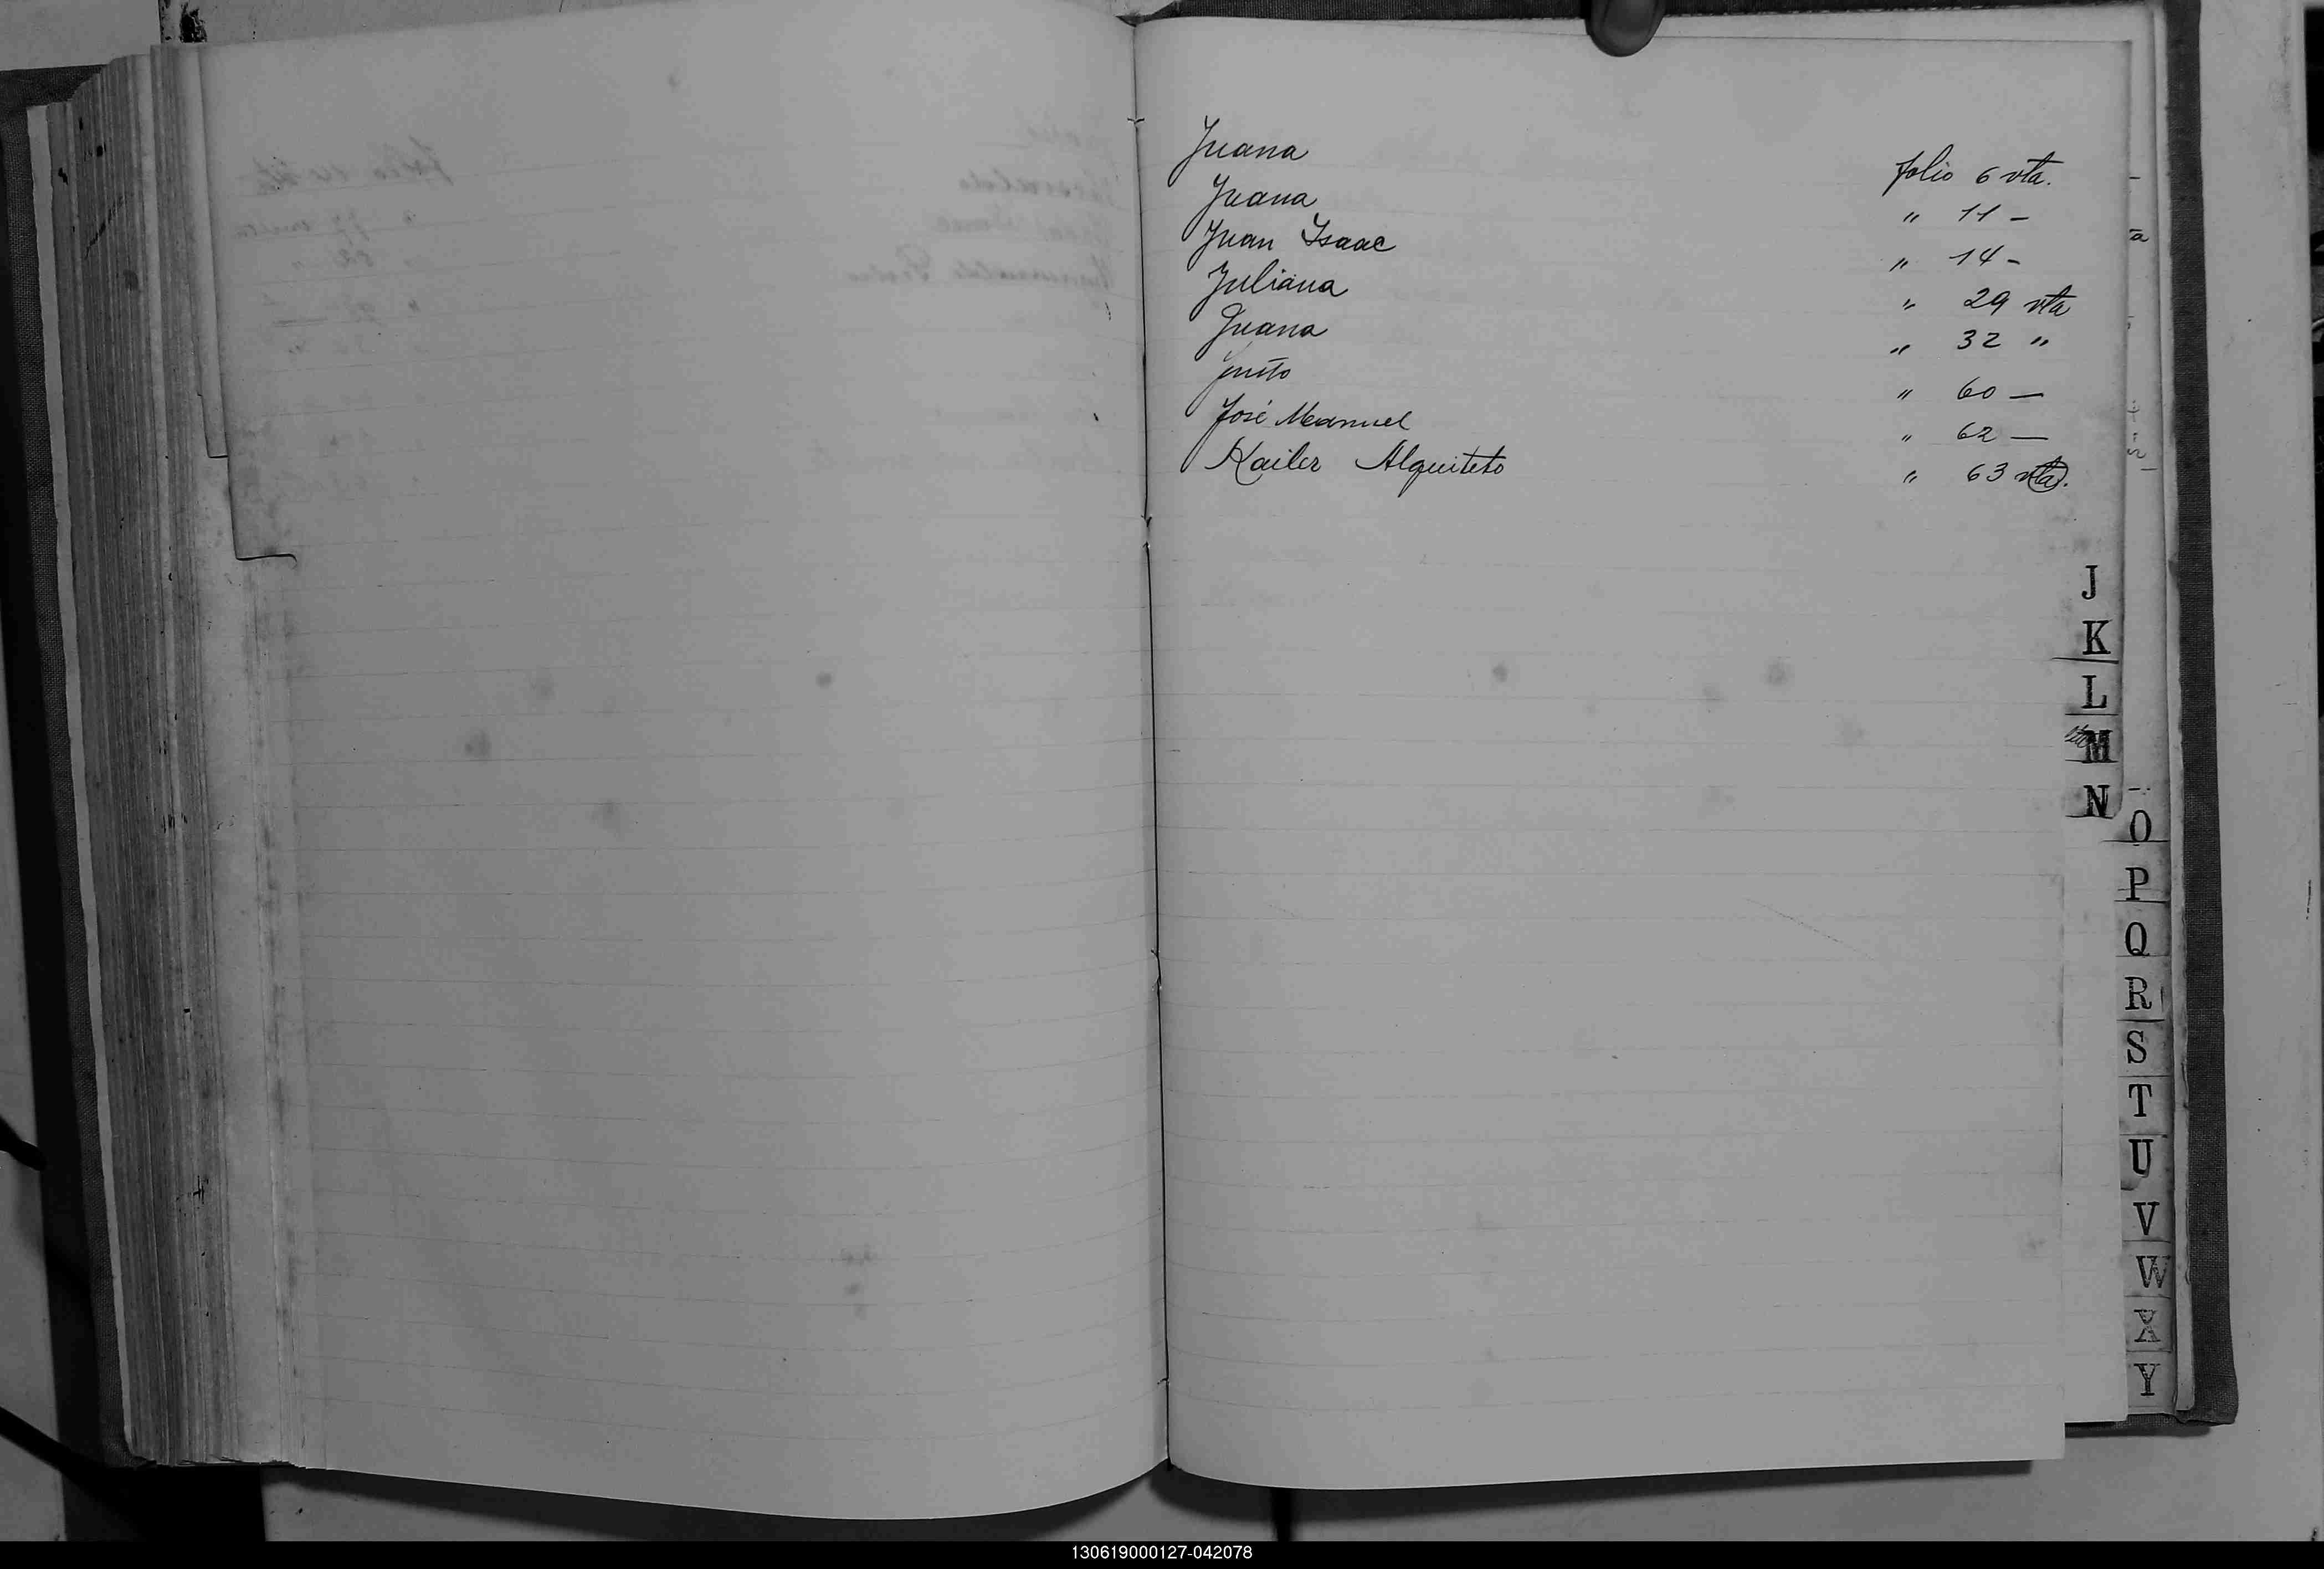 Juana folio 6 vta.
Juana " 11 -
Juan Isaac " 14 -
Juliana " 29 vta
Juana " 32 "
Justo " 60 —
José Manuel " 62 —
Kailer Alquiteto " 63 vta.
J
K
L
M
N
O
P
Q
R
S
T
U
V
W
X
Y
130619000127-042078